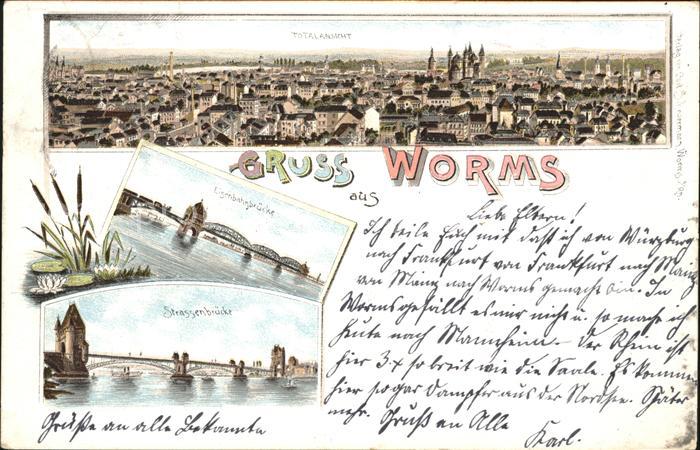 TOTALANSICHT
GRUSS aus WORMS
Eisenbahnbrücke
Strassenbrücke
Liebe Eltern!
Ich teile Euch mit daß ich von Würzburg
nach Frankfurt von Frankfurt nach Mainz
von Mainz nach Worms gemacht bin. In
Worms gefällt es mir nicht u. so mache ich
heute nach Mannheim. der Rhein ist
hier 3 x so breit wie die Saale. Es kommen
hier sogar Dampfer aus der Nordsee. Später
mehr. Gruß an Alle
Karl.
Grüße an alle Bekannte